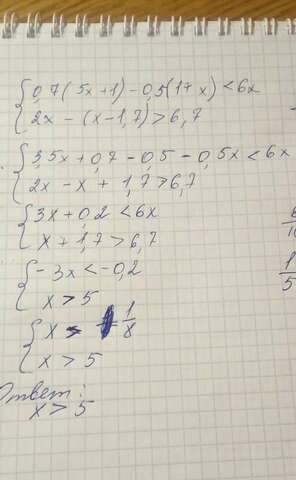 0,7(5x+1)-0,5(17x)<6x
2x-(x-1,7)>6,7
3,5x+0,7-0,5-0,5x<6x
2x-x+1,7>6,7
3x+0,2<6x
x+1,7>6,7
-3x<-0,2
x>5
x> 1/8
x>5
Ответ:
x>5
1/5